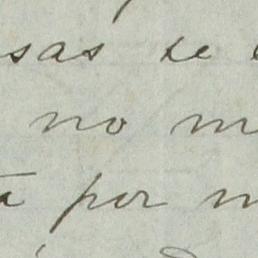 sas se
no m
por m